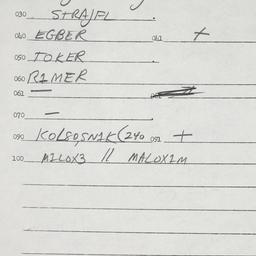 030 STRAJFL .
040 EGBER 041 +
050 TOKER
060 RIMER
061 —
070 — .
090 KOLSO,SN1K(240 091 +
100 MILOX3 // MALOX1M